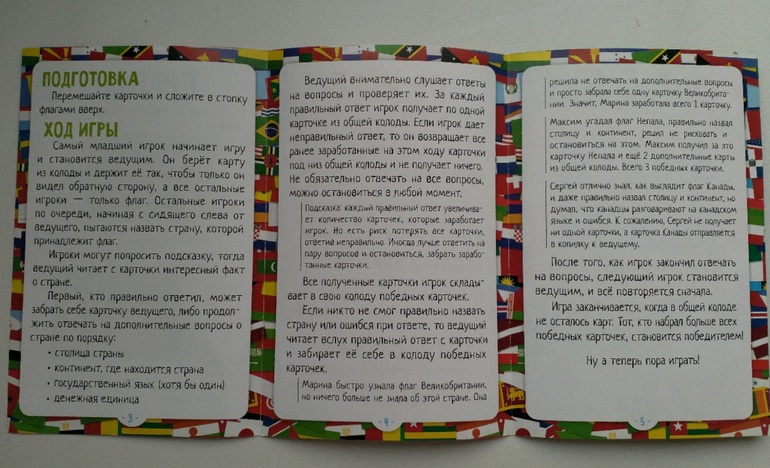 ПОДГОТОВКА
Перемешайте карточки и сложите в стопку
флагами вверх.
ХОД ИГРЫ
Самый младший игрок начинает игру
и становится ведущим. Он берёт карту
из колоды и держит её так, чтобы только он
видел обратную сторону, а все остальные
игроки — только флаг. Остальные игроки
по очереди, начиная с сидящего слева от
ведущего, пытаются назвать страну, которой
принадлежит флаг.
Игроки могут попросить подсказку, тогда
ведущий читает с карточки интересный факт
о стране.
Первый, кто правильно ответил, может
забрать себе карточку ведущего, либо продол-
жить отвечать на дополнительные вопросы о
стране по порядку:
• столица страны
• континент, где находится страна
• государственный язык (хотя бы один)
• денежная единица
- 3 -
Ведущий внимательно слушает ответы
на вопросы и проверяет их. За каждый
правильный ответ игрок получает по одной
карточке из общей колоды. Если игрок дает
неправильный ответ, то он возвращает все
ранее заработанные на этом ходу карточки
под низ общей колоды и не получает ничего.
Не обязательно отвечать на все вопросы,
можно остановиться в любой момент.
Подсказка: каждый правильный ответ увеличива-
ет количество карточек, которые заработает
игрок. Но есть риск потерять все карточки,
ответив неправильно. Иногда лучше ответить на
пару вопросов и остановиться, забрать зарабо-
танные карточки.
Все полученные карточки игрок склады-
вает в свою колоду победных карточек.
Если никто не смог правильно назвать
страну или ошибся при ответе, то ведущий
читает вслух правильный ответ с карточки
и забирает её себе в колоду победных
карточек.
Марина быстро узнала флаг Великобритании,
но ничего больше не знала об этой стране. Она
- 4 -
решила не отвечать на дополнительные вопросы
и просто забрала себе одну карточку Великобрита-
нии. Значит, Марина заработала всего 1 карточку.
Максим угадал флаг Непала, правильно назвал
столицу и континент, решил не рисковать и
остановиться на этом. Максим получил за это
карточку Непала и ещё 2 дополнительные карты
из общей колоды. Всего 3 победных карточки.
Сергей отлично знал, как выглядит флаг Канады,
и даже правильно назвал столицу и континент, но
думал, что канадцы разговаривают на канадском
языке и ошибся. К сожалению, Сергей не получает
ни одной карточки, а карточка Канады отправляется
в копилку к ведущему.
После того, как игрок закончил отвечать
на вопросы, следующий игрок становится
ведущим, и всё повторяется сначала.
Игра заканчивается, когда в общей колоде
не осталось карт. Тот, кто набрал больше всех
победных карточек, становится победителем!
Ну а теперь пора играть!
- 5 -